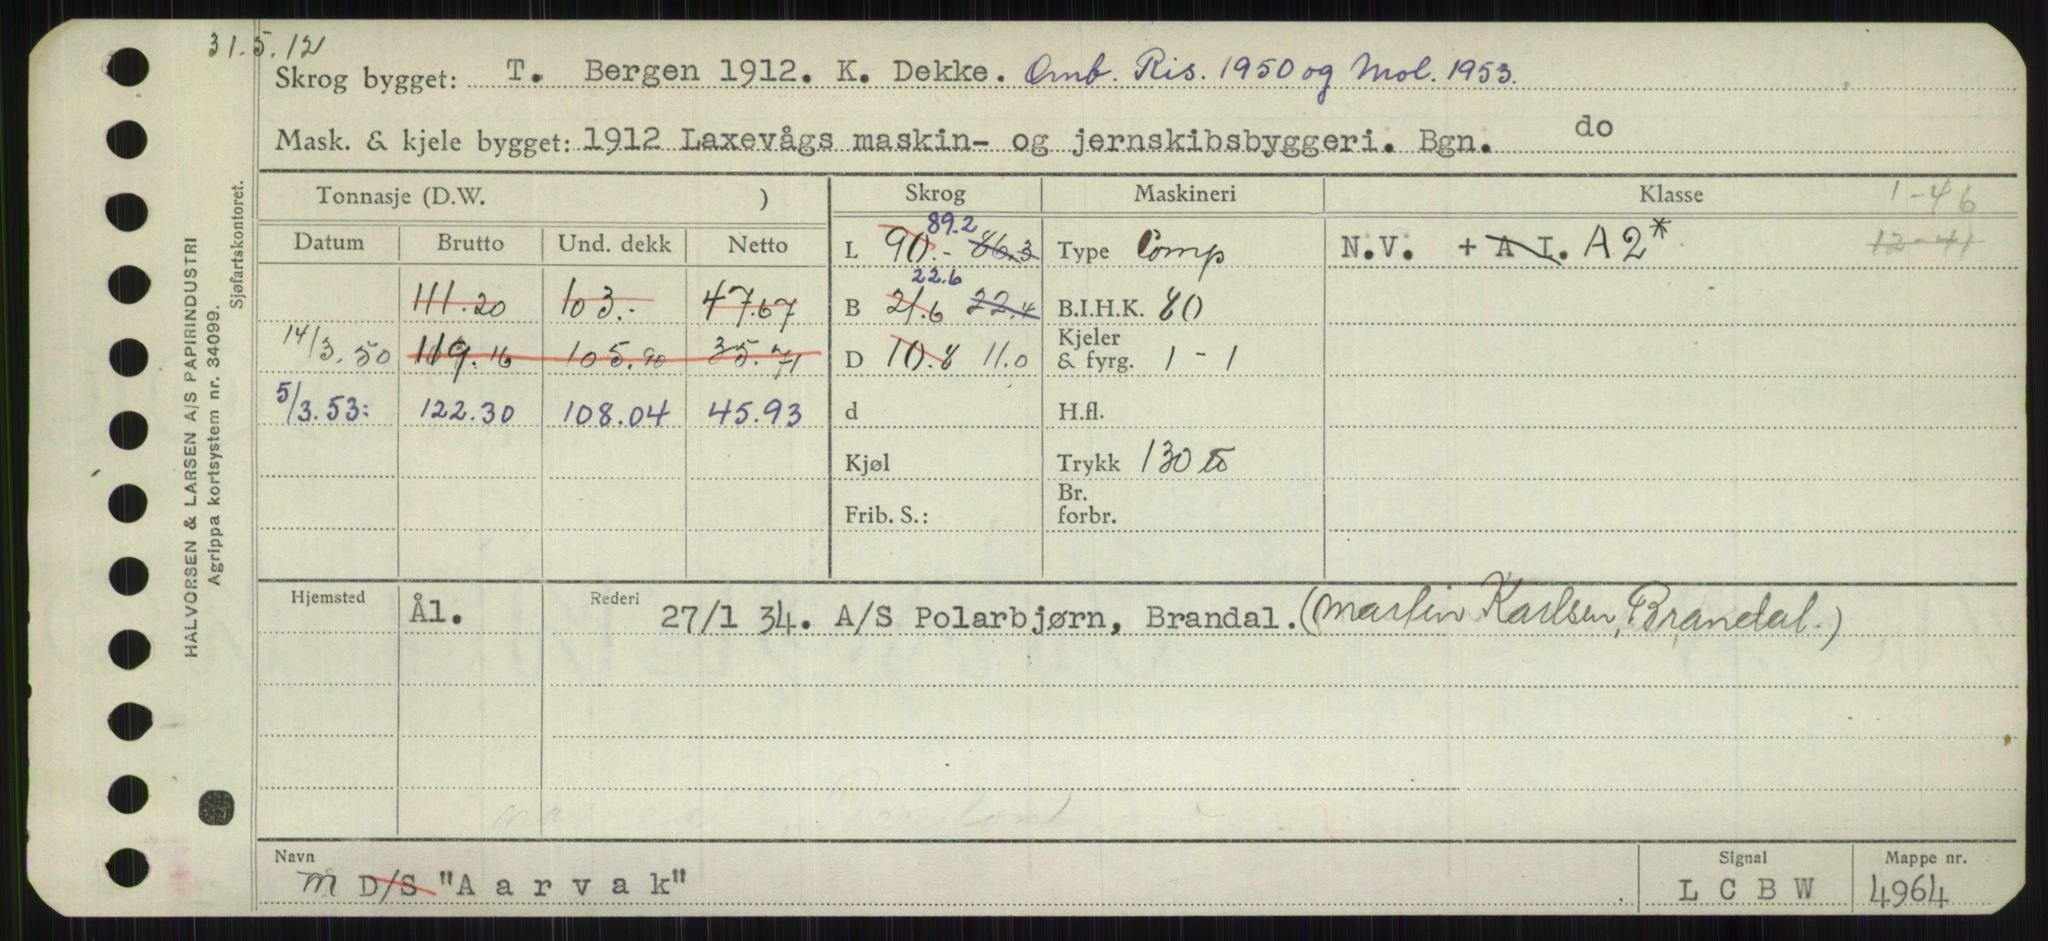 31.5.12
Skrog bygget: T. Bergen 1912. K. Dekke. Omb. Ris. 1950 og Mol. 1953.
Mask. & kjele bygget: 1912 Laxevågs maskin- og jernskibsbyggeri. Bgn. do
Tonnasje (D.W. ) Skrog Maskineri Klasse 1-46
Datum Brutto Und. dekk Netto L 90.- 86.3 89.2 Type Comp N.V. + A I. A2* 12-41
111.20 103.- 47.67 B 21.6 22.4 22.6 B.I.H.K. 80
14/3.50 119.16 105.90 35.71 D 10.8 11.0 Kjeler & fyrg. 1 - 1
5/3.53: 122.30 108.04 45.93 d H.fl.
Kjøl Trykk 130 lb
Frib. S.: Br. forbr.
Hjemsted Ål. Rederi 27/1 34. A/S Polarbjørn, Brandal. (Martin Karlsen, Brandal.)
Navn Signal Mappe nr.
M D/S "Aarvak" LCBW 4964
HALVORSEN & LARSEN A/S PAPIRINDUSTRI
Agrippa kortsystem nr. 34099.
Sjøfartskontoret.